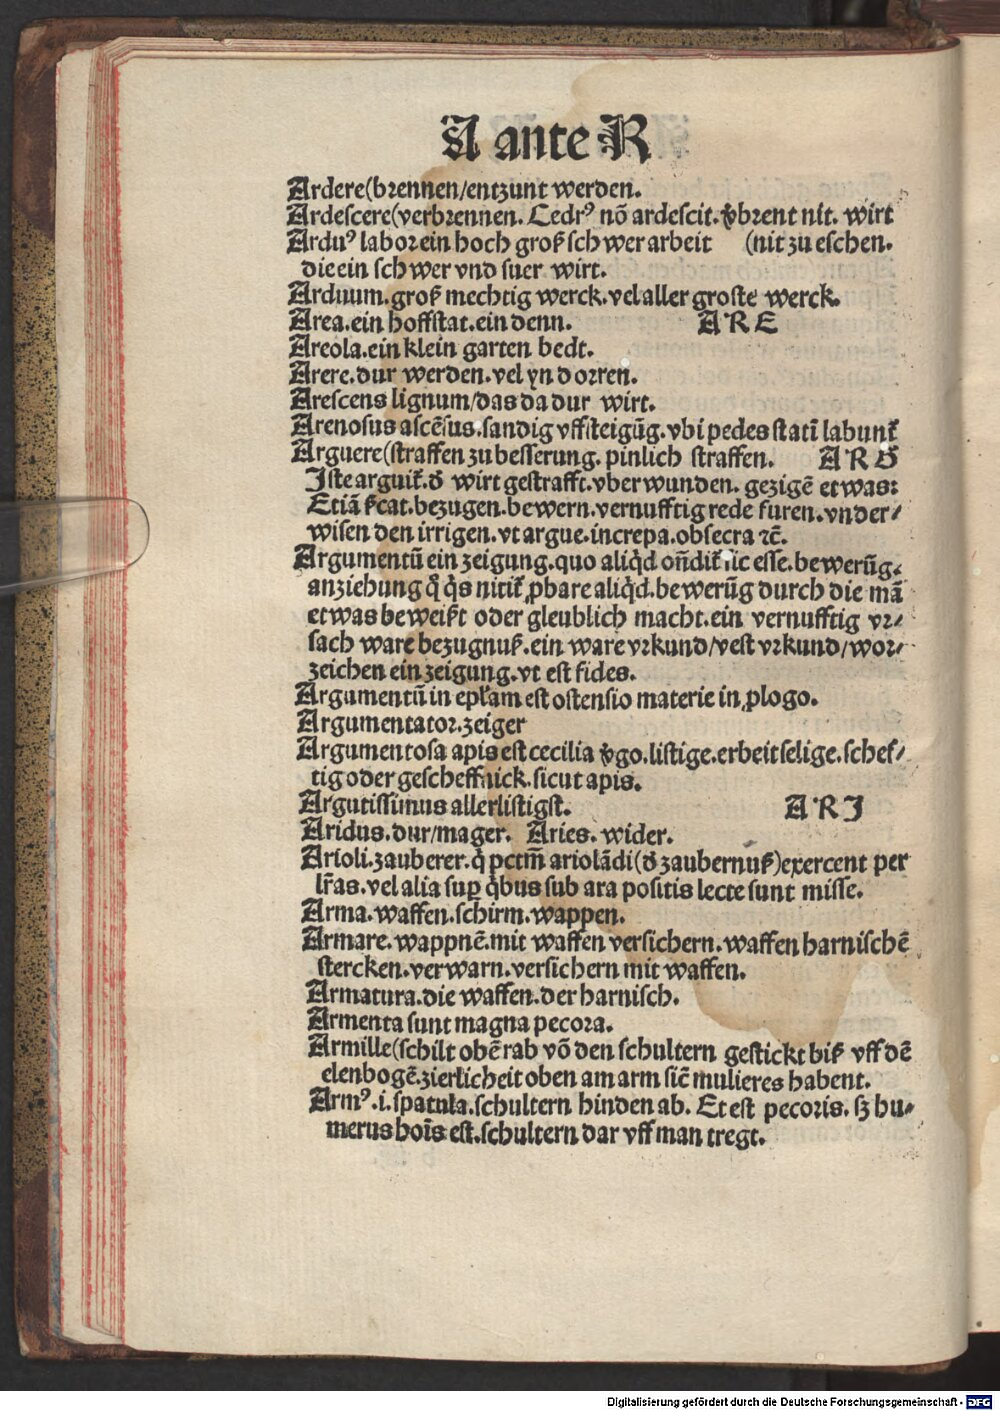 A ante R
Ardere(brennen/entzunt werden.
Ardescere(verbrennen. Cedrꝰ nō ardescit. v̓brent nit. wirt
Arduꝰ labor ein hoch groß schwer arbeit (nit zu eschen.
die ein schwer vnd suer wirt.
Arduum. groß mechtig werck. vel aller groste werck.
Area. ein hoffstat. ein denn. A R E
Areola. ein klein garten bedt.
Arere. dur werden. vel yn dorren.
Arescens lignum/das da dur wirt.
Arenosus ascēsus. sandig vffsteigūg. vbi pedes statī labunt̄
Arguere(straffen zu besserung. pinlich straffen. A R G
Iste arguit̄. d̓ wirt gestrafft. vberwunden. gezigē etwas:
Etiā ſcat. bezugen. bewern. vernufftig rede furen. vnder/
wisen den irrigen. vt argue. increpa. obsecra ⁊c̄.
Argumentū ein zeigung. quo aliq̇d on̄dit̄ sic esse. bewerūg.
anziehung q̇ q̇s nitit̄ ꝓbare aliq̇d. bewerūg durch die mā
etwas beweißt oder gleublich macht. ein vernufftig vr/
sach ware bezugnuß. ein ware vrkund/vest vrkund/wor/
zeichen ein zeigung. vt est fides.
Argumentū in epl̄am est ostensio materie in ꝓlogo.
Argumentator. zeiger
Argumentosa apis est cecilia v̓go. listige. erbeitselige. schef/
tig oder gescheffnick. sicut apis.
Argutissimus allerlistigst. A R I
Aridus. dur/mager. Aries. wider.
Arioli. zauberer. q̇ pctm̄ ariolādi(d̓ zaubernuß)exercent per
lr̄as. vel alia suꝑ q̇bus sub ara positis lecte sunt misse.
Arma. waffen. schirm. wappen.
Armare. wappnē. mit waffen versichern. waffen harnischē
stercken. verwarn. versichern mit waffen.
Armatura. die waffen. der harnisch.
Armenta sunt magna pecora.
Armille(schilt obē rab vō den schultern gestickt biß vff dē
elenbogē. zierlicheit oben am arm sic̄ mulieres habent.
Armꝰ. i. spatula. schultern hinden ab. Et est pecoris. sꝫ hu/
merus hoīs est. schultern dar vff man tregt.
Digitalisierung gefördert durch die Deutsche Forschungsgemeinschaft - DFG